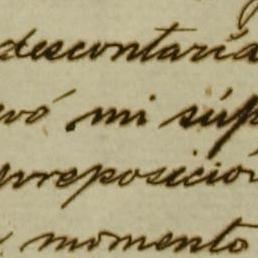 descontaría
vó mi súp
rreposición
momento